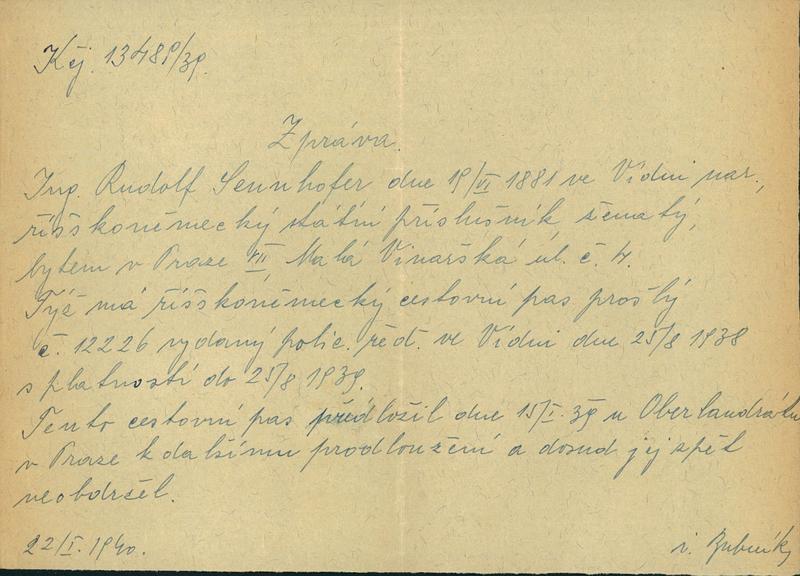 Kčj. 13489/39.
Zpráva.
Ing. Rudolf Sennhofer dne 19/VI 1881 ve Vídni nar.,
říšskoněmecký státní příslušník ženatý,
bytem v Praze VII, Malá Vinařská ul. č. 4.
Týž má říšskoněmecký cestovní pas prošlý
č. 12226 vydaný polic. řed. ve Vídni dne 25/8 1938
s platností do 25/8 1939.
Tento cestovní pas předložil dne 15/I. 39 u Oberlandrátu
v Praze k dalšímu prodloužení a dosud jej zpět
neobdržel.
22/I. 1940.